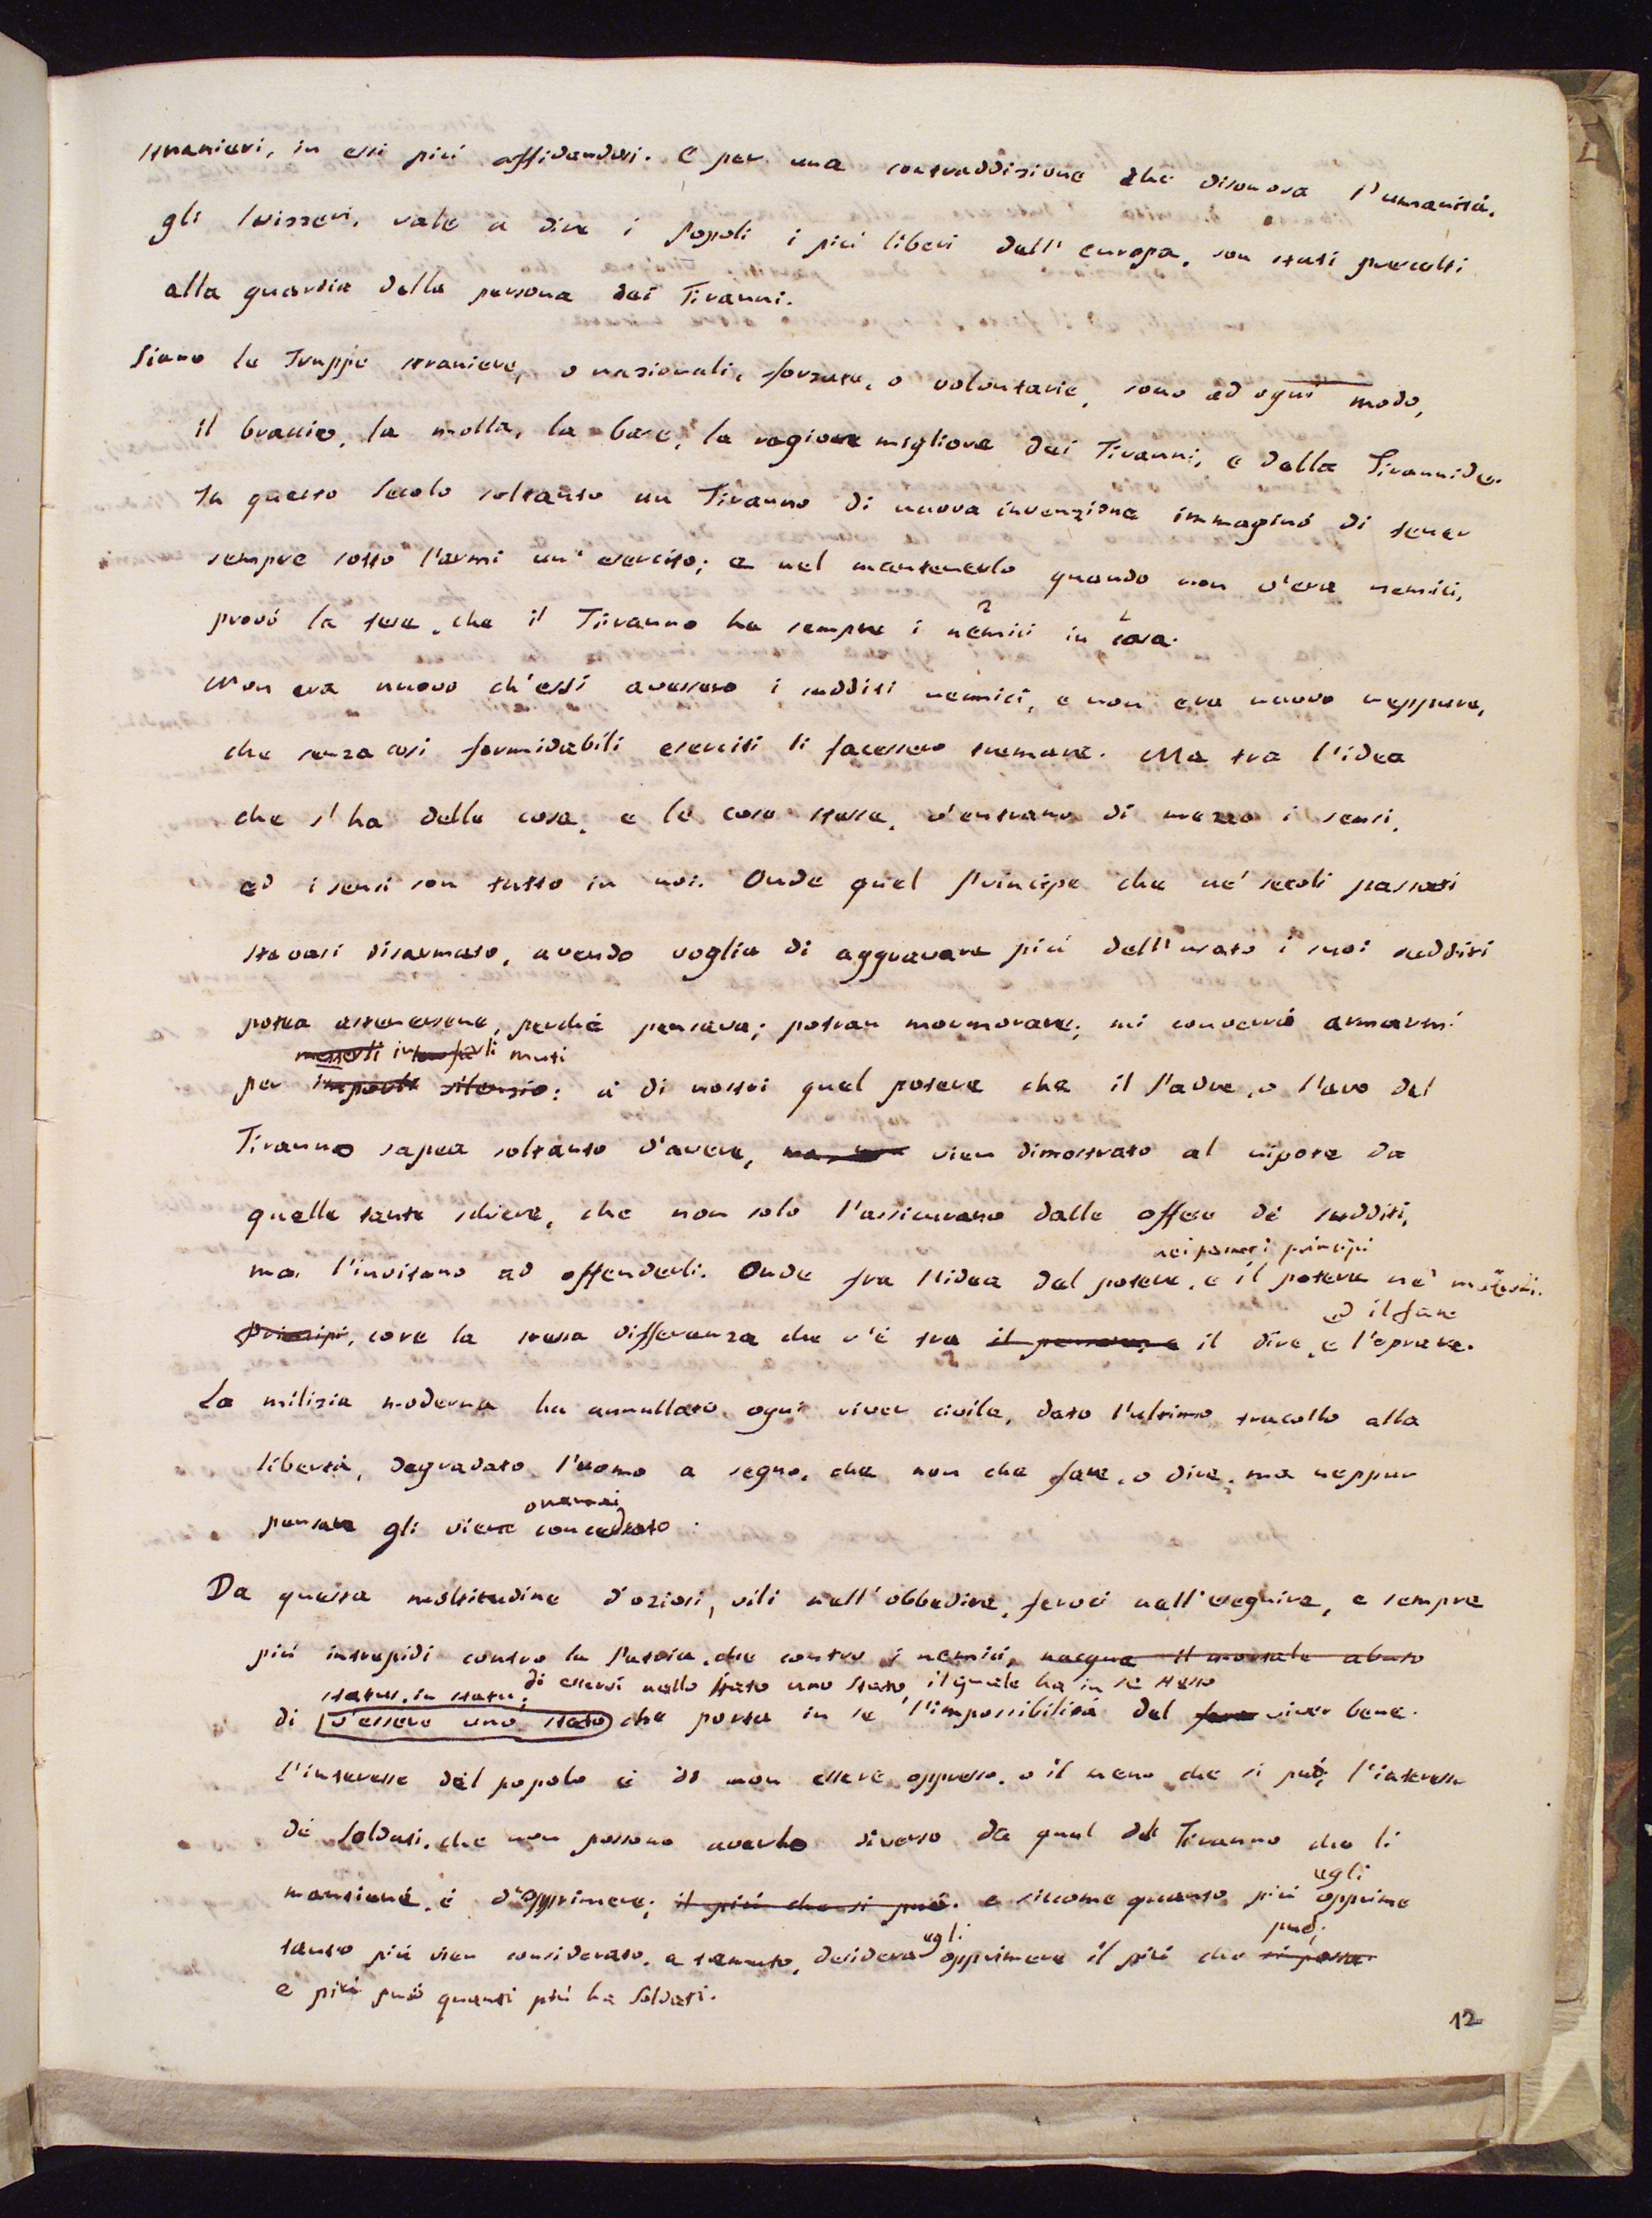 stranieri, in essi piú affidandosi. E per una contraddizione che disonora l'umanitá,
gli Svizzeri, vale a dire i Popoli i piú liberi dell'europa, son stati prescelti
alla guardia della persona dei Tiranni.
Siano le Truppe straniere, o nazionali, forzate, o volontarie, sono ad ogni modo,
il braccio, la molla, la base, la ragione migliore dei Tiranni, e della Tirannide.
In questo Secolo soltanto un Tiranno di nuova invenzione immaginó di tener
sempre sotto l'armi un'esercito; e nel mantenerlo quando non v'era nemici,
provó la tesi, che il Tiranno ha sempre i nemici in casa.
2 1
Non era nuovo ch'essi avessero i sudditi nemici, e non era nuovo neppure,
che senza cosí formidabili eserciti li facessero tremare. Ma tra l'idea
che s'ha della cosa, e la cosa stessa, v'entrano di mezzo i sensi,
ed i sensi son tutto in noi. Onde quel Principe che ne' secoli passati
stavasi disarmato, avendo voglia di aggravare piú dell'usato i suoi sudditi
potea astenersene, perché pensava; potran mormorare; mi converrá armarmi
metterli in farli muti
per imporle silenzio: a dí nostri quel potere che il Padre, o l'avo del
Tiranno sapea soltanto d'avere, vien dimostrato al nipote da
quelle tante schiere, che non solo l'assicurano dalle offese de' sudditi,
ma l'invitano ad offenderli. Onde fra l'idea del potere, e il potere ne' moderni
nei passati principi
Principi, core la stessa differenza che v'é tra il pensare, e il dire, e l'oprare.
ed il fare
La milizia moderna ha annullato ogni viver civile, dato l'ultimo tracollo alla
libertá, degradato l'uomo a segno, che non che fare, o dire, ma neppur
oramai
pensare gli viene conceduto.
Da questa moltitudine d'oziosi, vili nell'obbedire, feroci nell'eseguire, e sempre
piú intrepidi contro la Patria, che contro i nemici, nacque il mortale abuso
status in statu; di esservi nello Stato uno Stato, il quale ha in sé stesso
di v'essere uno stato che porta in se l'impossibilitá del fare viver bene.
l'interesse del popolo é di non essere oppresso, o il meno che si puó; l'interesse
de' Soldati, che non possono averlo diverso da quel del Tiranno che li
mantiene, é d'opprimere; il piú che si puó. e siccome quanto piú opprime
egli
tanto piú vien considerato, e temuto, desidera egli opprimere il piú che si possa
puó;
e piú puó quanti piú ha Soldati.
12